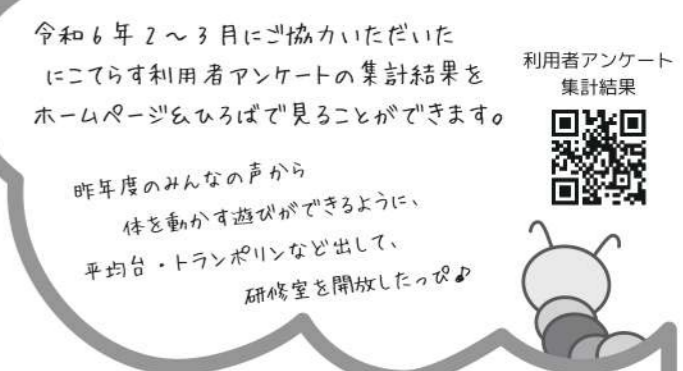 令和6年2～3月にご協力いただいた
にこてらす利用者アンケートの集計結果を
ホームページ&ひろばで見ることができます。
利用者アンケート
集計結果
昨年度のみんなの声から
体を動かす遊びができるように、
平均台・トランポリンなど出して、
研修室を開放したっぴ♪